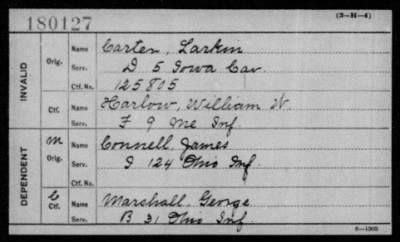 180127
(3-H-4)
INVALID
Orig.
Name Carter, Larkin
Serv. D 5 Iowa Cav.
Ctf. No. 125805
Ctf.
Name Harlow, William W.
Serv. F 9 Me Inf.
DEPENDENT
M
Orig.
Name Connell, James
Serv. I 124 Ohio Inf.
Ctf. No.
C
Ctf.
Name Marshall, George
Serv. B 31 Ohio Inf.